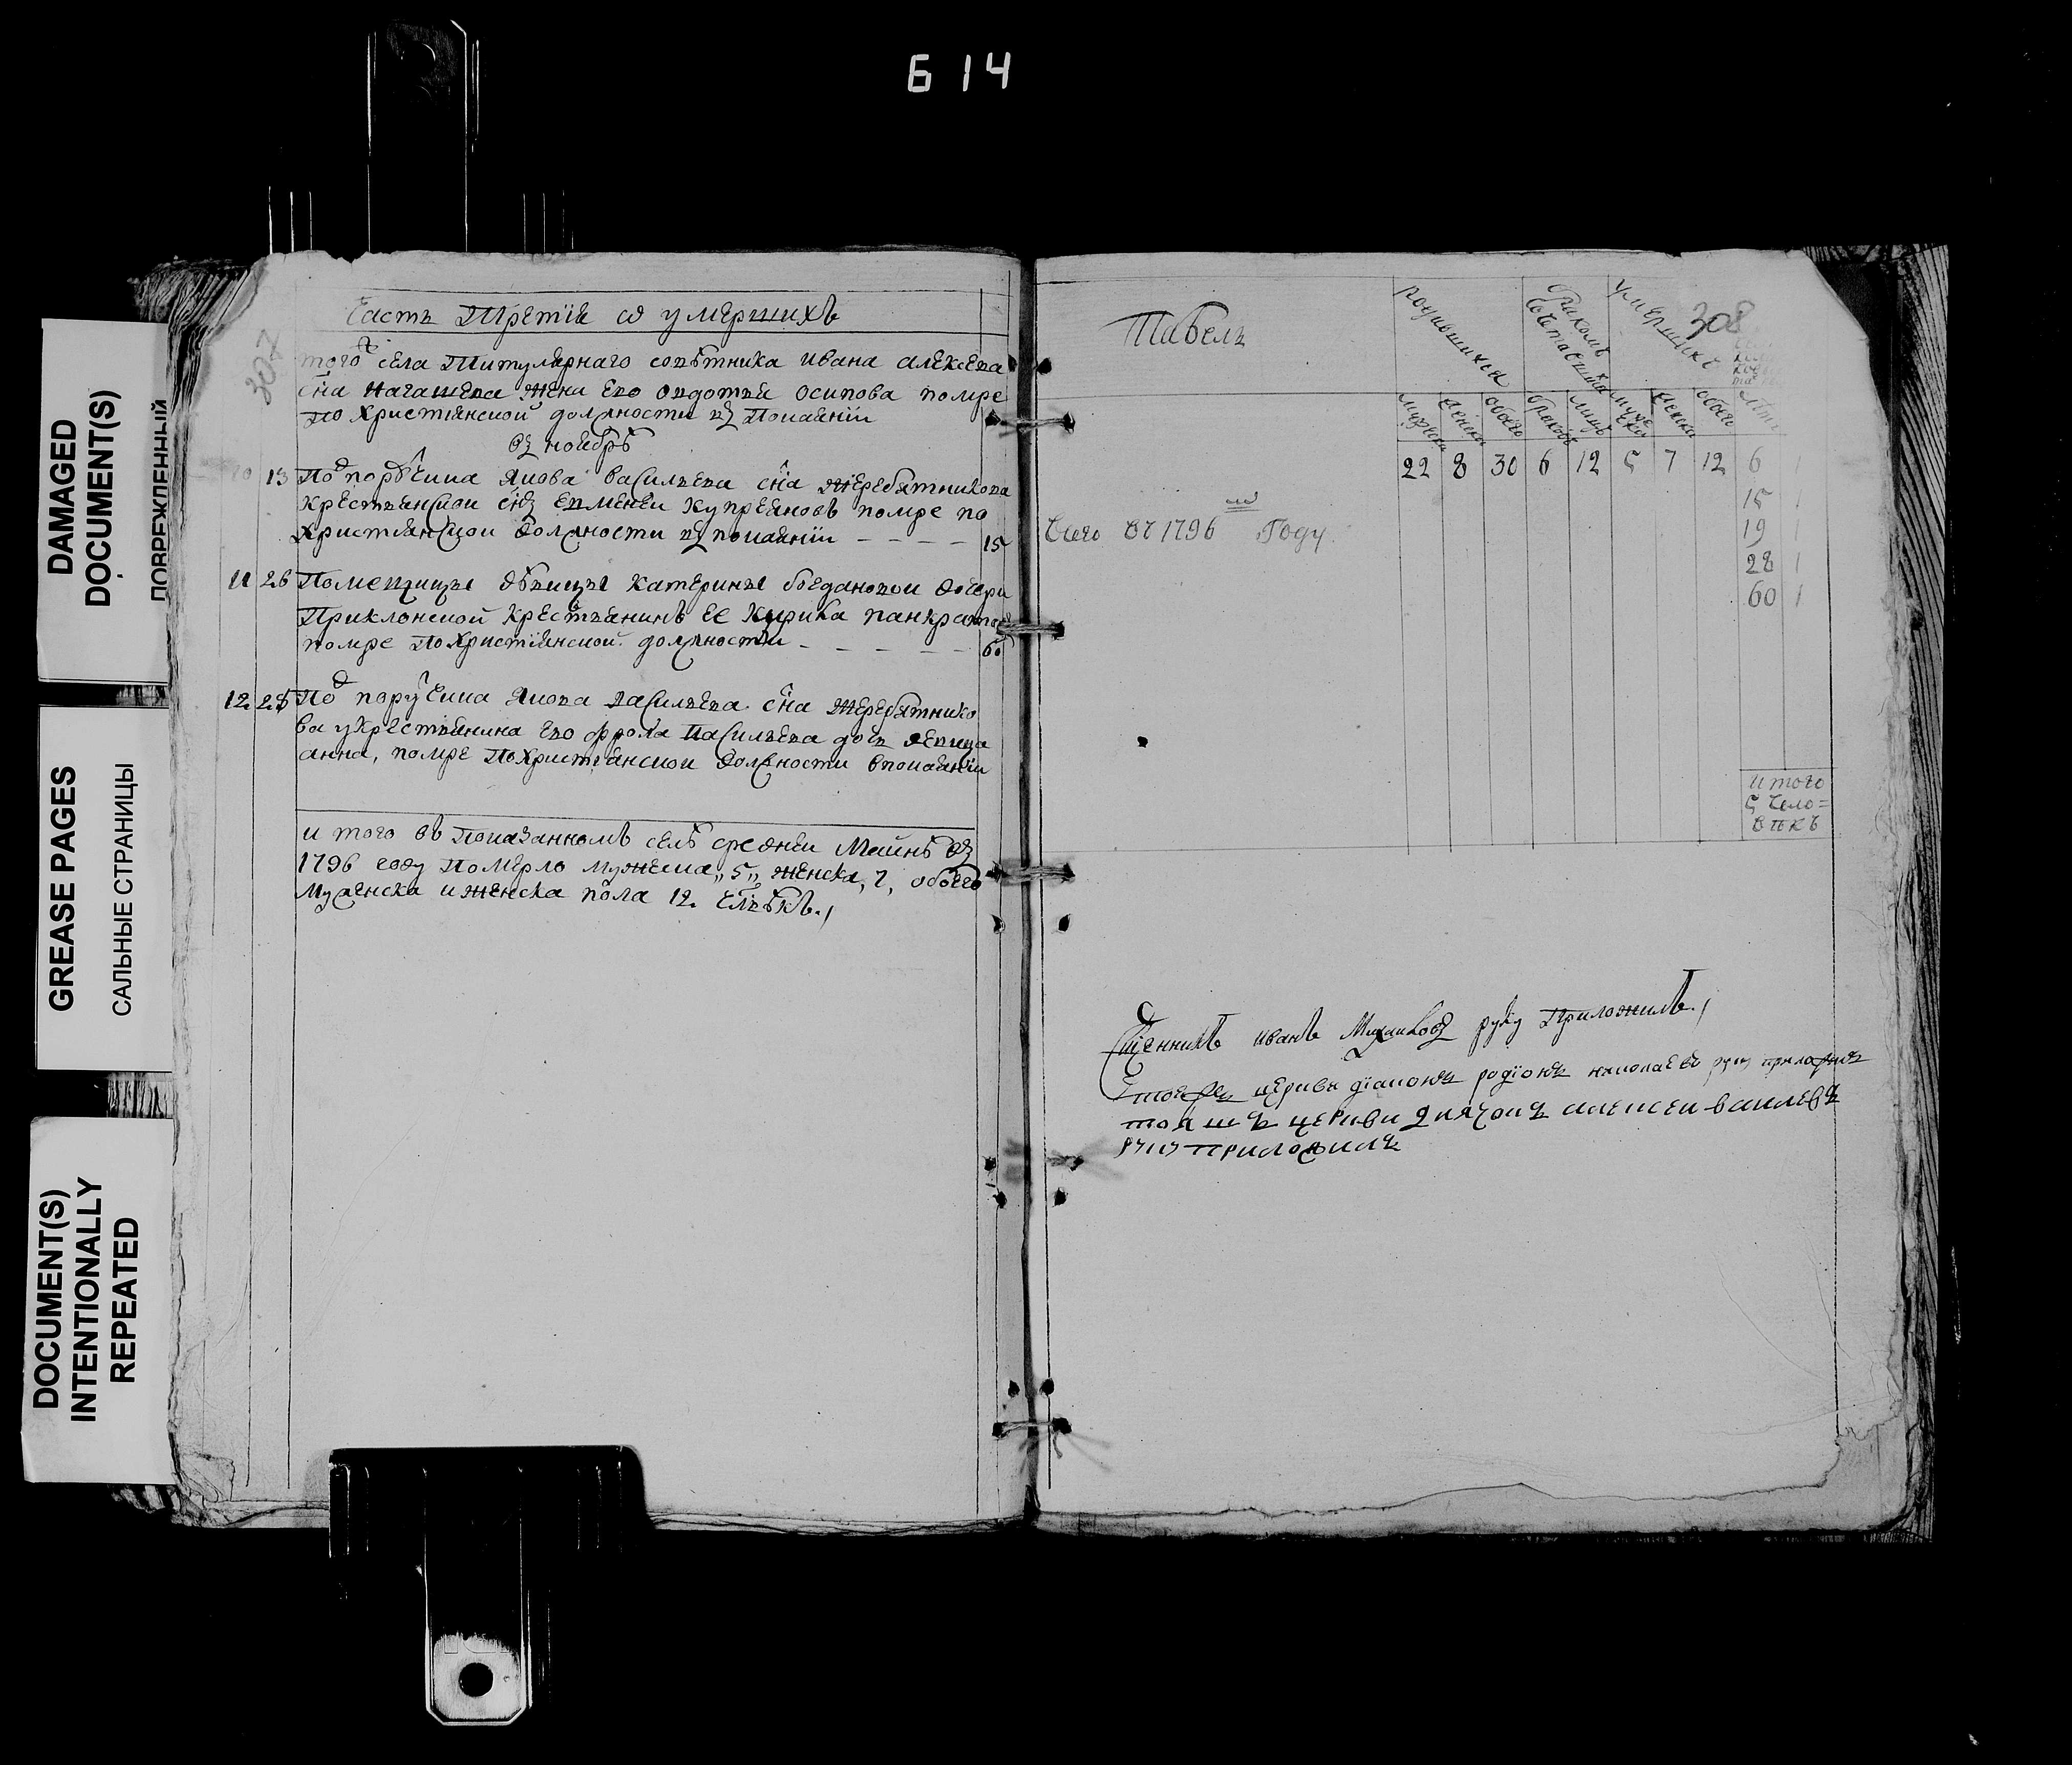 614
DAMAGED
DOCUMENT(S)
ПОВРЕЖДЕННЫЙ
GREASE PAGES
САЛЬНЫЕ СТРАНИЦЫ
DOCUMENT(S)
INTENTIONALLY
REPEATED
307
Часть Третіѧ ѡ умершихъ
того ж села Титулярнаго совѣтника ивана алексеева
сна Нагашева жена ево овдотья осипова помре
по христіянской должности въ Покаяніи
въ ноябрѣ
10 13 По д порутчика Якова васильева сна жеребятникова
крестьянской снъ евменеи купреяновъ помре по
христіянской должности въ покаяніи - - - - 15
11 26 Помещицы дѣвицы катерины богдановой дочери
Приклонской крестьянинъ ее кирика панкратов
помре по христіянской должности - - - - - 60
12 28 По д поручика Якова василева сна жеребятнико
ва у крестьянина ево фрола василева дочь девица
анна, помре по христіянской должности в покаяніи
и того въ показанномъ селѣ средней Майнѣ въ
1796 году померло мужеска „5„ женска, 7, обоего
мужеска и женска пола 12. члвѣкъ.
308
Табель
родившихся
бракомъ сочетавшихся
умершихъ
мужеска женска обоего браковъ лицъ мужеска женска обоего лѣта
22 8 30 6 12 5 7 12 6 1
15 1
19 1
28 1
60 1
Всего въ 1796 м Году
итого
5 чело=
вѣкъ
Сщенникъ иванъ Михаиловъ руку приложилъ
церкви діаконъ родіонъ николаевъ руку приложилъ
той ж церкви дьячокъ алексеи василевъ
руку приложилъ